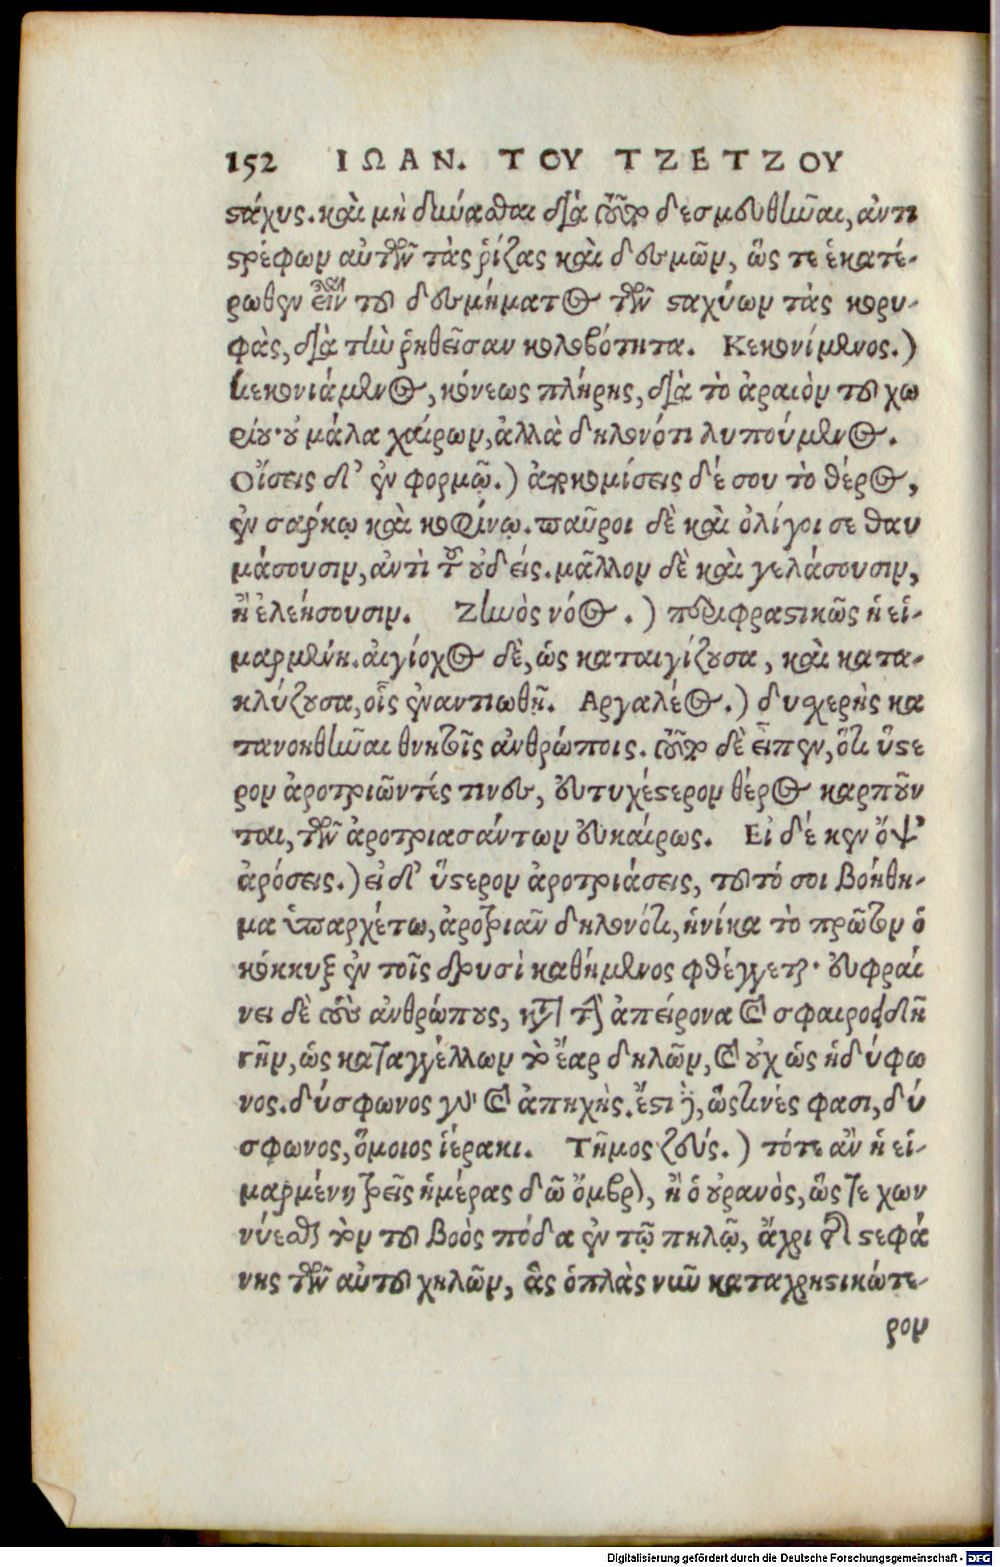 152 ΙΩΑΝ. ΤΟΥ ΤΖΕΤΖΟΥ
στάχυς. καὶ μὴ δύνασθαι διὰ τοῦτο δεσμευθῆναι, ἀντι
στρέφων αὐτῶν τὰς ῥίζας καὶ δεσμῶν, ὥς τε ἑκατέ-
ρωθεν εἶναι τοῦ δεσμήματος τῶν σταχύων τὰς κορυ-
φὰς, διὰ τὴν ῥηθεῖσαν κολοβότητα. Κεκονίμενος.)
κεκονιάμενος, κόνεως πλήρης, διὰ τὸ ἀραιὸν τοῦ χω
ρίου· οὐ μάλα χαίρων, ἀλλὰ δηλονότι λυπούμενος.
Οἴσεις δ' ἐν φορμῷ.) ἀποκομίσεις δέ σου τὸ θέρος,
ἐν σάκκῳ καὶ κοφίνῳ. παῦροι δὲ καὶ ὀλίγοι σε θαυ
μάσουσιν, ἀντὶ τοῦ οὐδείς. μᾶλλον δὲ καὶ γελάσουσιν,
ἢ ἐλεήσουσιν. Ζηνὸς νόος.) περιφραστικῶς ἡ εἱ-
μαρμένη. αἰγίοχος δὲ, ὡς καταιγίζουσα, καὶ κατα-
κλύζουσα, οἷς ἐναντιωθῇ. Αργαλέος.) δυσχερὴς κα
τανοηθῆναι θνητοῖς ἀνθρώποις. τοῦτο δὲ εἶπεν, ὅτι ὕστε
ρον ἀροτριῶντές τινες, εὐτυχέστερον θέρος καρποῦν
ται, τῶν ἀροτριασάντων εὐκαίρως. Εἰ δέ κεν ὄψ'
ἀρόσεις.) εἰ δ' ὕστερον ἀροτριάσεις, τοῦτό σοι βοήθη-
μα ὑπαρχέτω, ἀροτριᾶν δηλονότι, ἡνίκα τὸ πρῶτον ὁ
κόκκυξ ἐν τοῖς δρυσὶ καθήμενος φθέγγεται· εὐφραί
νει δὲ τοὺς ἀνθρώπους, κατὰ τὴν ἀπείρονα καὶ σφαιροειδῆ
γῆν, ὡς καταγγέλλων τὸ ἔαρ δηλῶν, καὶ οὐχ ὡς ἡδύφω
νος. δύσφωνος γὰρ καὶ ἀπηχής. ἔστι δὲ, ὥς τινές φασι, δύ
σφωνος, ὅμοιος ἱέρακι. Τῆμος ζεύς.) τότε ἂν ἡ εἱ-
μαρμένη τρεῖς ἡμέρας δῶ ὄμβρον, ἢ ὁ οὐρανὸς, ὥς τε χων
νύεσθαι τὸν τοῦ βοὸς πόδα ἐν τῷ πηλῷ, ἄχρι τῆς στεφά
νης τῶν αὐτοῦ χηλῶν, ἃς ὁπλὰς νῦν καταχρηστικώτε-
ρον
Digitalisierung gefördert durch die Deutsche Forschungsgemeinschaft - DFG